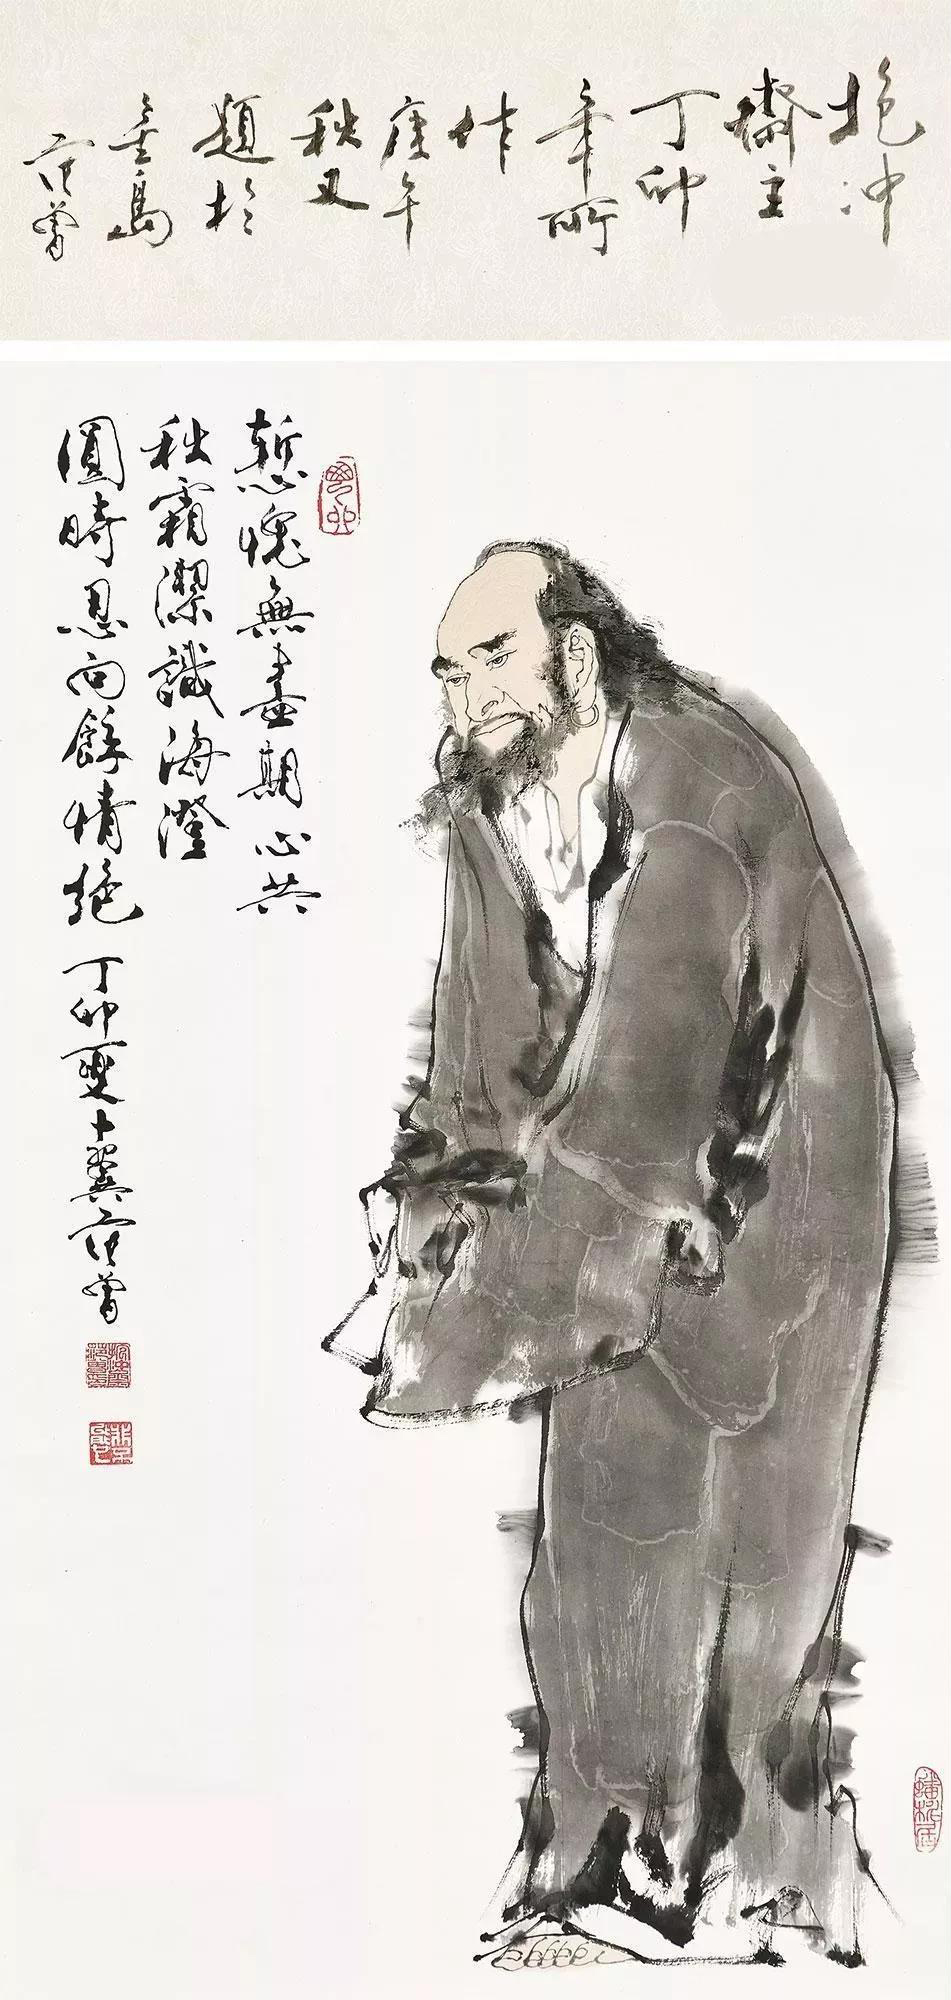 抱冲
齋主
丁卯
年所
作
庚午
秋又
題於
島
范曾
慙愧無盡期心共
秋霜潔識海澄
圓時恩向餘情絕 丁卯夏十翼范曾